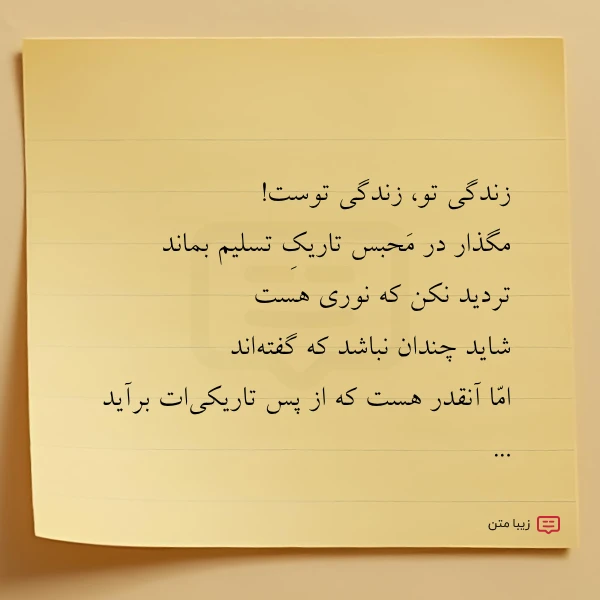 زندگی تو، زندگی توست!
مگذار در مَحبس تاریکِ تسلیم بماند
تردید نکن که نوری هست
شاید چندان نباشد که گفته‌اند
امّا آنقدر هست که از پس تاریکی‌ات برآید
...
زیبا متن